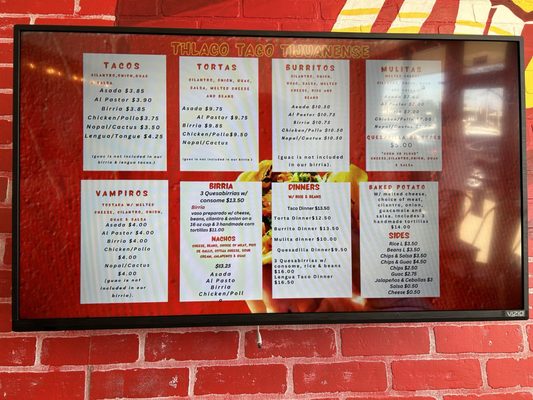 THLACO TACO TIJUANENSE
TACOS
CILANTRO, ONION, GUAC
SALSA
Asada $3.85
Al Pastor $3.50
Birria $3.85
Chicken/Pollo$3.75
Nopal/Cactus $3.50
Lengua/Tongue $4.25
(guac is not included in our
birria & lengua tacos)
TORTAS
CILANTRO, ONION, GUAC,
SALSA, MELTED CHEESE
AND BEANS
Asada $9.75
Al Pastor $9.75
Birria $9.85
Chicken/Pollo$9.50
Nopal/Cactus
(guac is not included in our birria)
BURRITOS
CILANTRO, ONION, GUAC,
SALSA, MELTED
CHEESE, RICE AND
BEANS
Asada $10.50
Al Pastor $10.75
Birria $10.75
Chicken/Pollo $10.50
Nopal/Cactus $10.50
(guac is not included
in our birria).
MULITAS
MELTED CHEESE
$5.00
CHEESE, CILANTRO, ONION, GUAC
& SALSA
VAMPIROS
TOSTADA W/ MELTED
CHEESE, CILANTRO, ONION,
GUAC & SALSA
Asada $4.00
Al Pastor $4.00
Birria $4.00
Chicken/Pollo
$4.00
Nopal/Cactus
$4.00
(guac is not
included in our
birria).
BIRRIA
3 Quesabirrias w/
consome $13.50
Birria
vaso preparado w/ cheese,
beans, cilantro & onion on a
16 oz cup & 3 handmade corn
tortillas $11.00
NACHOS
CHEESE, BEANS, CHOICE OF MEAT, PICO
DE GALLO, COTIJA CHEESE, SOUR
CREAM, JALAPEÑOS & GUAC
$13.25
Asada
Al Pasto
Birria
Chicken/Poll
DINNERS
W/ RICE & BEANS
Taco Dinner $13.50
Torta Dinner$12.50
Burrito Dinner $13.50
Mulita dinner $10.00
Quesadilla Dinner$9.50
3 Quesabirrias w/
consome, rice & beans
$16.00
Lengua Taco Dinner
$16.50
BAKED POTATO
W/ melted cheese,
choice of meat,
cilantro, onion,
guacamole and
salsa. Includes 3
handmade tortillas
$14.00
SIDES
Rice $3.50
Beans $3.50
Chips & Salsa $3.50
Chips & Guac $4.50
Chips $2.50
Guac $2.75
Jalapeños & Cebollas $3
Salsa $0.50
Cheese $0.50
VIZIO